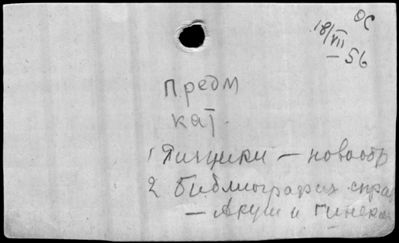 ОС
18/VII
— 56
Предм
кат.
1 Яичники — новообр
2 Библиография спра
— Акуш и гинекол